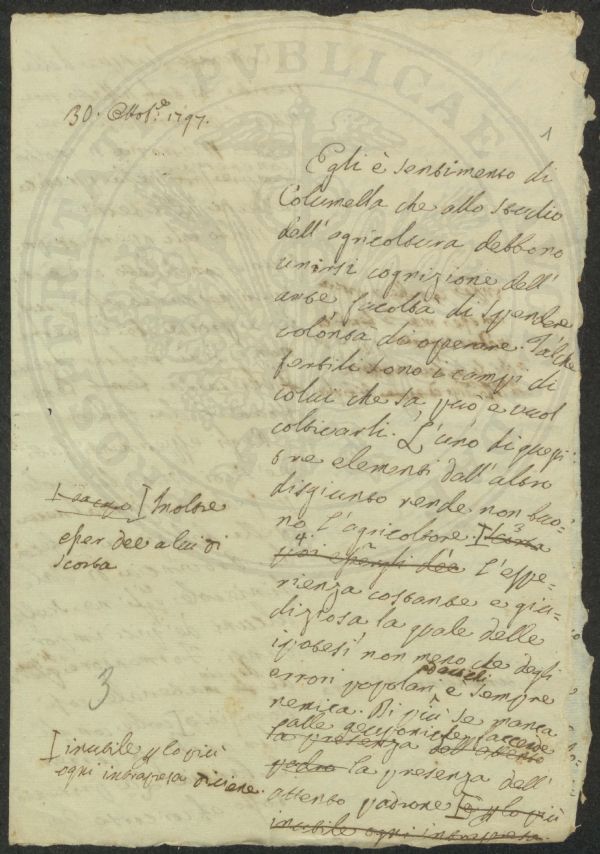 30. Ott.e 1797.
1
Egli è sentimento di
Columella che allo studio
dell' agricoltura debbono
unirsi cognizione dell'
arte facoltà di spendere
volontà di operare. Talche
fertili sono i campi di
colui che sa può e vuol
coltivarli. L'uno di questi
tre elementi dall' altro
disgiunto rende non buo-
no l'agricoltore.
L'espe-
rienza costante e giu-
diziosa la quale delle
ipotesi non meno che degli
errori popolari è sempre
nemica. Di più se manca
alle
la presenza dell' attento
padro la presenza dell'
attento padrone e p lo più
inutile ogni intrapresa.
Inoltre
esser dee a lui di
scorta
3
inutile p lo più
ogni intrapresa diviene.
PVBLICAE